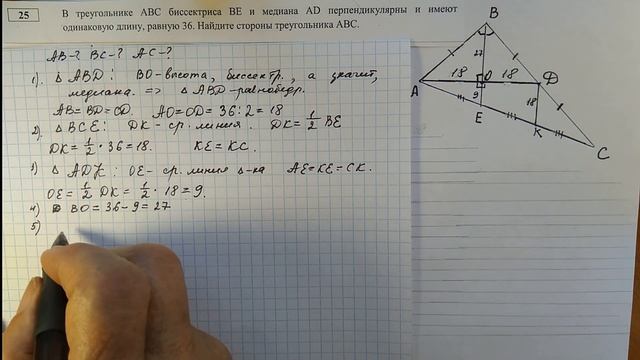 25
В треугольнике ABC биссектриса BE и медиана AD перпендикулярны и имеют
одинаковую длину, равную 36. Найдите стороны треугольника ABC.
AB-? BC-? AC-?
1). △ABD: BO-высота, биссектр., а значит,
медиана. => △ABD-равнобедр.
AB=BD=CD. AO=OD=36:2=18
2). △BCE: DK-ср. линия. DK=1/2 BE
DK=1/2·36=18. KE=KC.
3) △ADK: OE-ср. линия △-ка AE=KE=CK.
OE=1/2 DK=1/2·18=9.
4) BO=36-9=27
5)
B
27
18
18
A
O
D
9
18
E
K
C